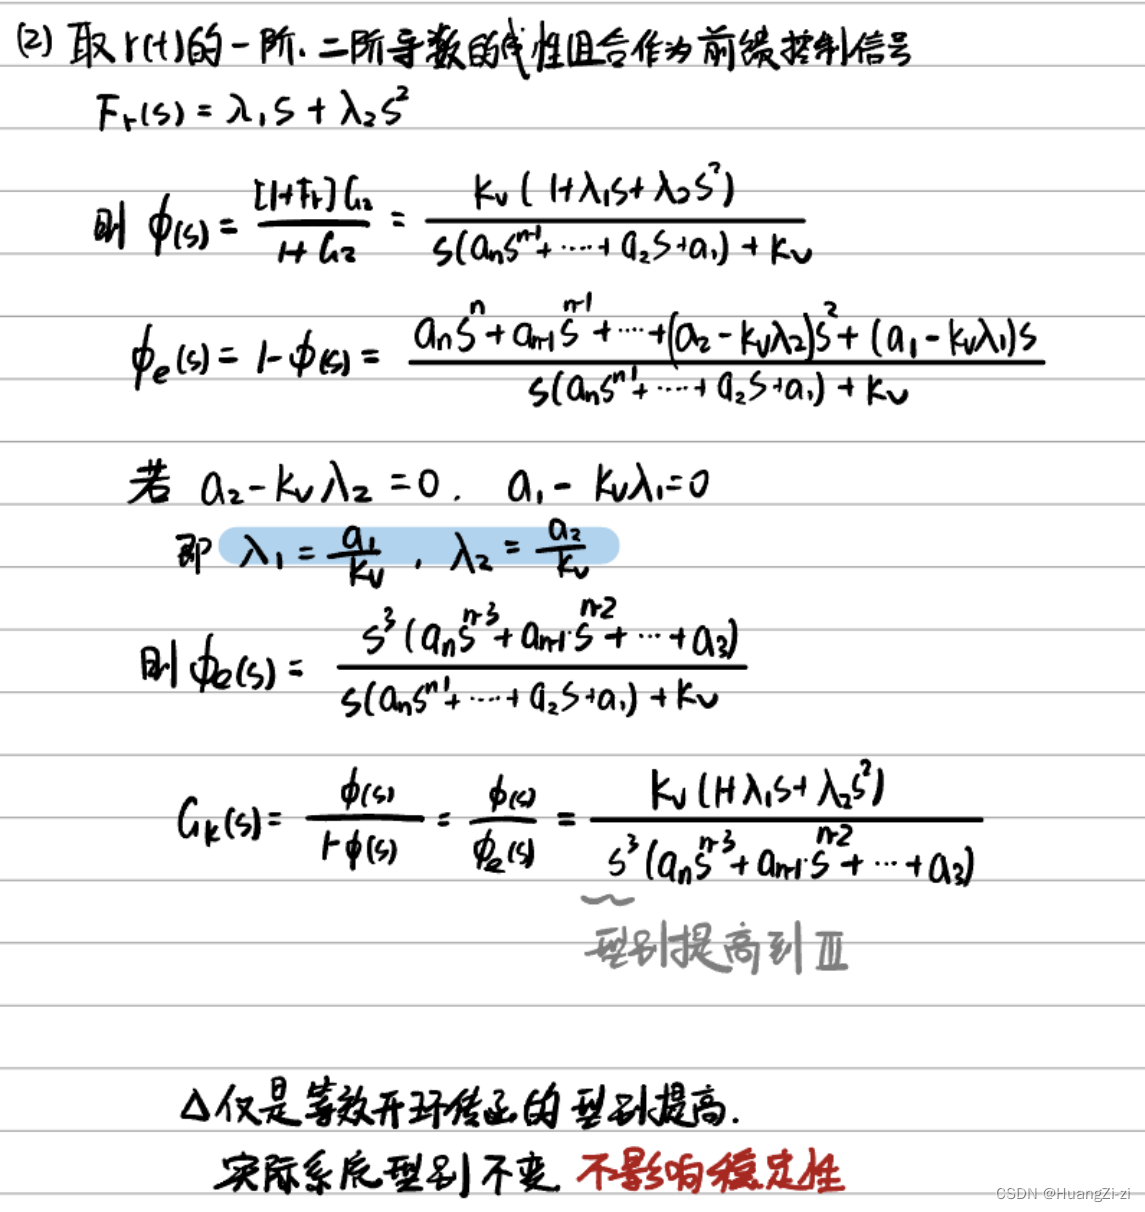 (2) 取r(t)的一阶、二阶导数的线性组合作为前馈控制信号
Fr(s) = λ₁s + λ₂s²
则 ϕ(s) = [1+Fr]G₂ / 1+G₂ = Kv(1+λ₁s+λ₂s²) / s(aₙsⁿ⁻¹+……+a₂s+a₁)+Kv
ϕe(s) = 1-ϕ(s) = aₙsⁿ+aₙ₋₁sⁿ⁻¹+……+(a₂-Kvλ₂)s²+(a₁-Kvλ₁)s / s(aₙsⁿ⁻¹+……+a₂s+a₁)+Kv
若 a₂-Kvλ₂=0. a₁-Kvλ₁=0
即 λ₁ = a₁/Kv , λ₂ = a₂/Kv
则 ϕe(s) = s³(aₙsⁿ⁻³+aₙ₋₁·sⁿ⁻²+…+a₃) / s(aₙsⁿ⁻¹+……+a₂s+a₁)+Kv
Gk(s) = ϕ(s) / 1-ϕ(s) = ϕ(s) / ϕe(s) = Kv(1+λ₁s+λ₂s²) / s³(aₙsⁿ⁻³+aₙ₋₁·sⁿ⁻²+…+a₃)
型别提高到Ⅲ
Δ仅是等效开环传函的型别提高.
实际系统型别不变 不影响稳定性
CSDN @HuangZi-zi